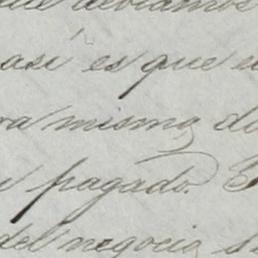 debíamos
así es que
misma
pagado.
del negocio